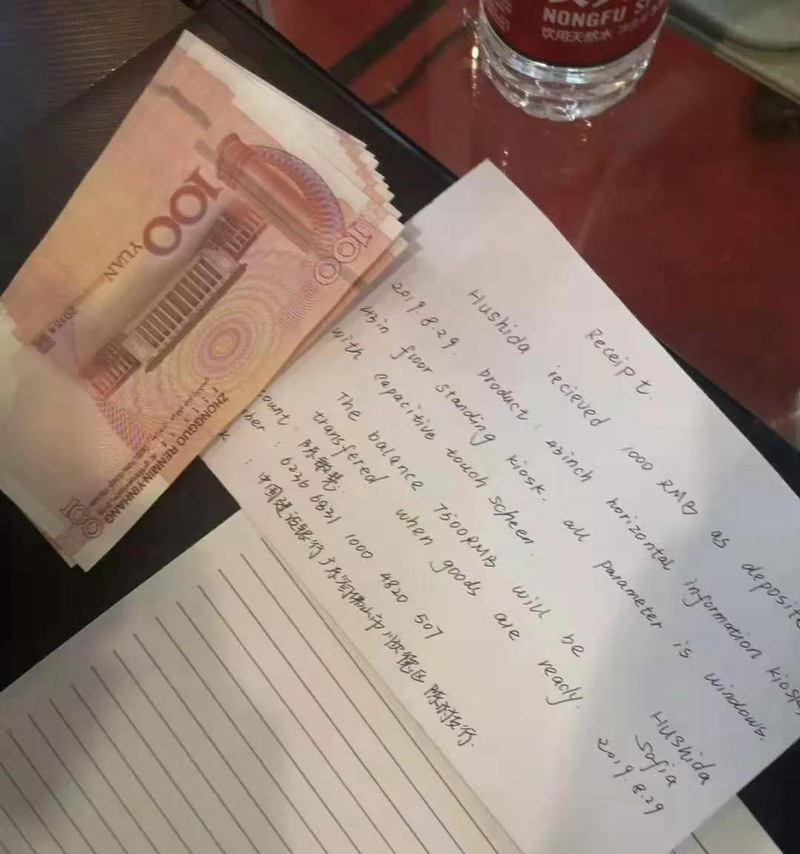 NONGFU S
饮用天然水
100
YUAN
100
2015年
ZHONGGUO RENMIN YINHANG
100
Receipt.
Hushida recieved 1000 RMB as deposite
2019.8.29. product: 43inch horizontal information kiosks
43in floor standing kiosk. all parameter is windows.
with capacitive touch scheen.
The balance 7500RMB will be
transfered when goods are ready.
count: 陈
ber: 6236 6831 1000 4820 507
k: 中国建设银行广东省佛山市顺德区陈村支行.
Hushida
Sofia
2019.8.29